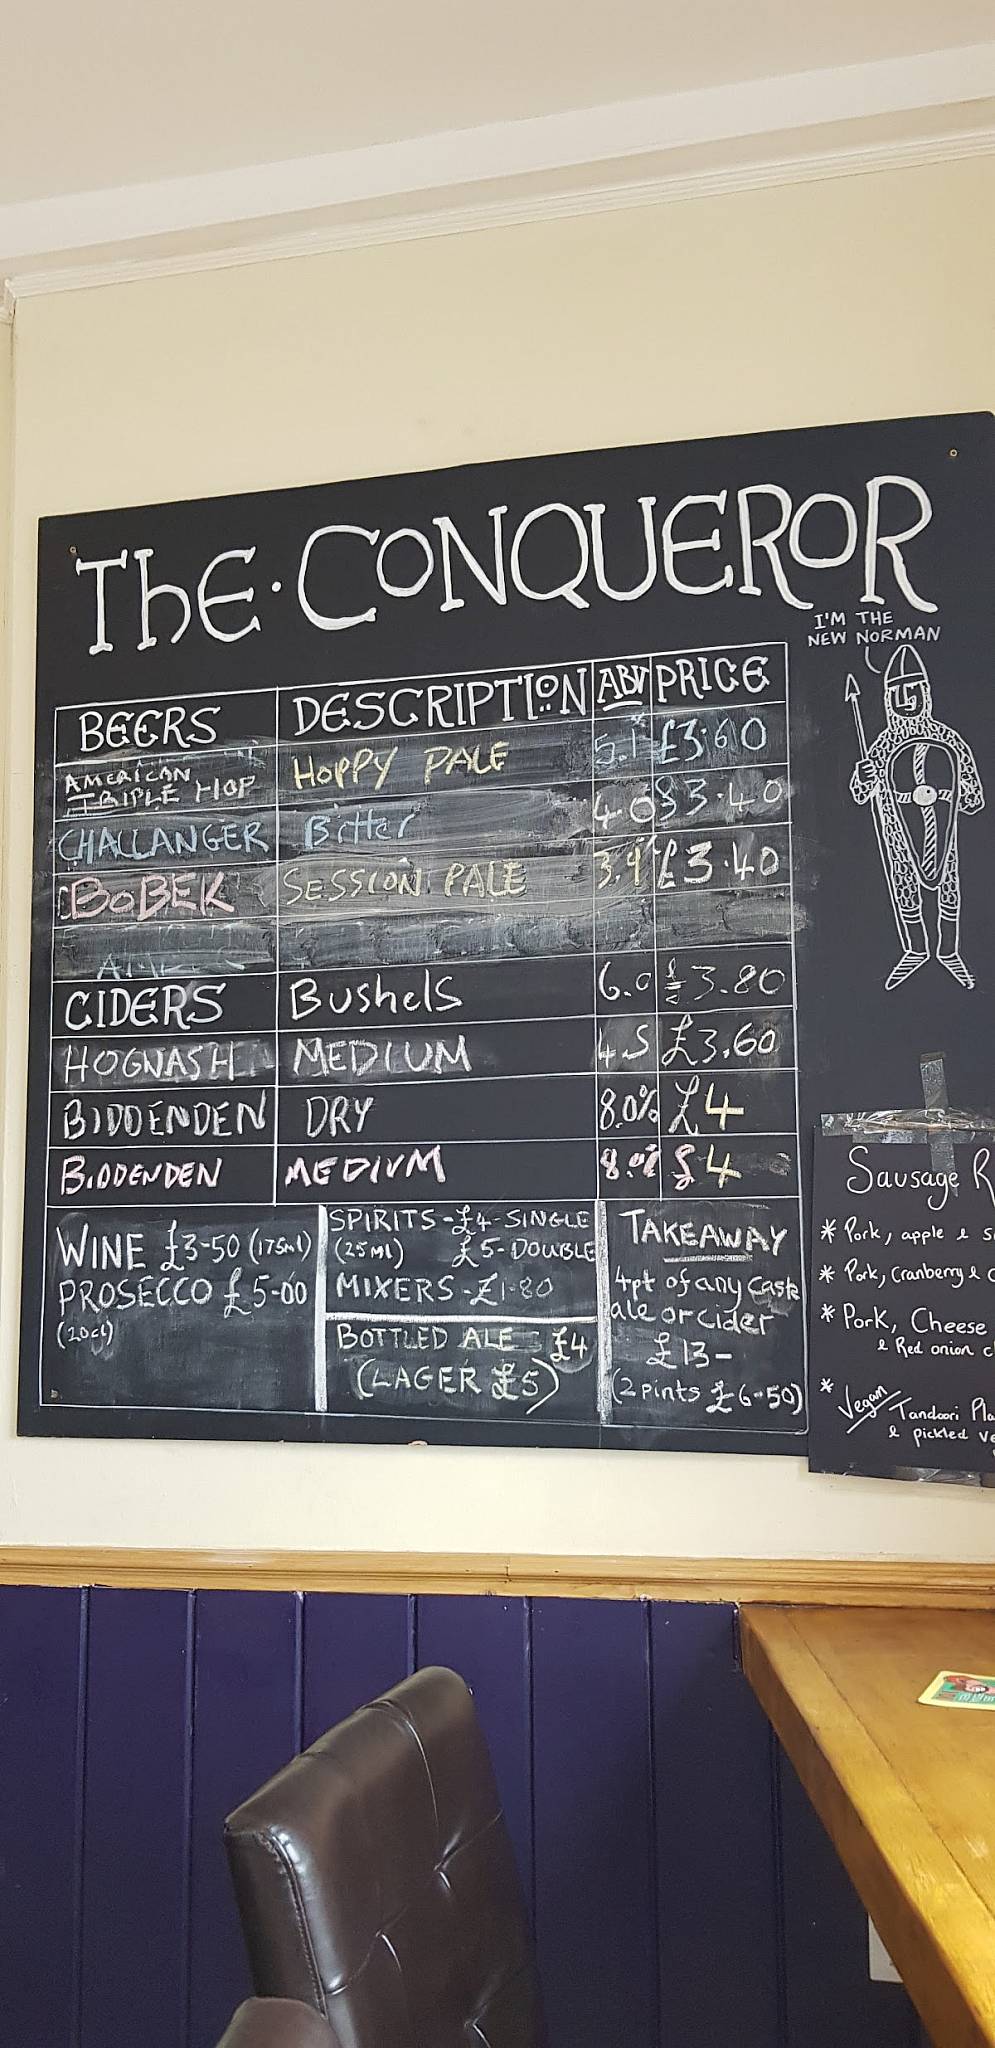 The·CONQUEROR
I'M THE
NEW NORMAN
BEERS DESCRIPTION ABV PRICE
AMERICAN
TRIPLE HOP HOPPY PALE 5.1 £3.60
CHALLANGER Bitter 4.0 £3.40
BOBEK SESSION PALE 3.9 £3.40
CIDERS Bushels 6.0 £3.80
HOGNASH MEDIUM 4.5 £3.60
BIDDENDEN DRY 8.0% £4
BIDDENDEN MEDIUM 8.0% £4
WINE £3-50 (175ml)
PROSECCO £5-00
(20cl)
SPIRITS - £4-SINGLE
(25ML) £5-DOUBLE
MIXERS - £1-80
BOTTLED ALE : £4
(LAGER £5)
TAKEAWAY
4pt of any cask
ale or cider
£13-
(2 pints £6-50)
Sausage R
* Pork, apple & s
* Pork, Cranberry & c
* Pork, Cheese
& Red onion c
* Vegan Tandoori Pla
& pickled ve